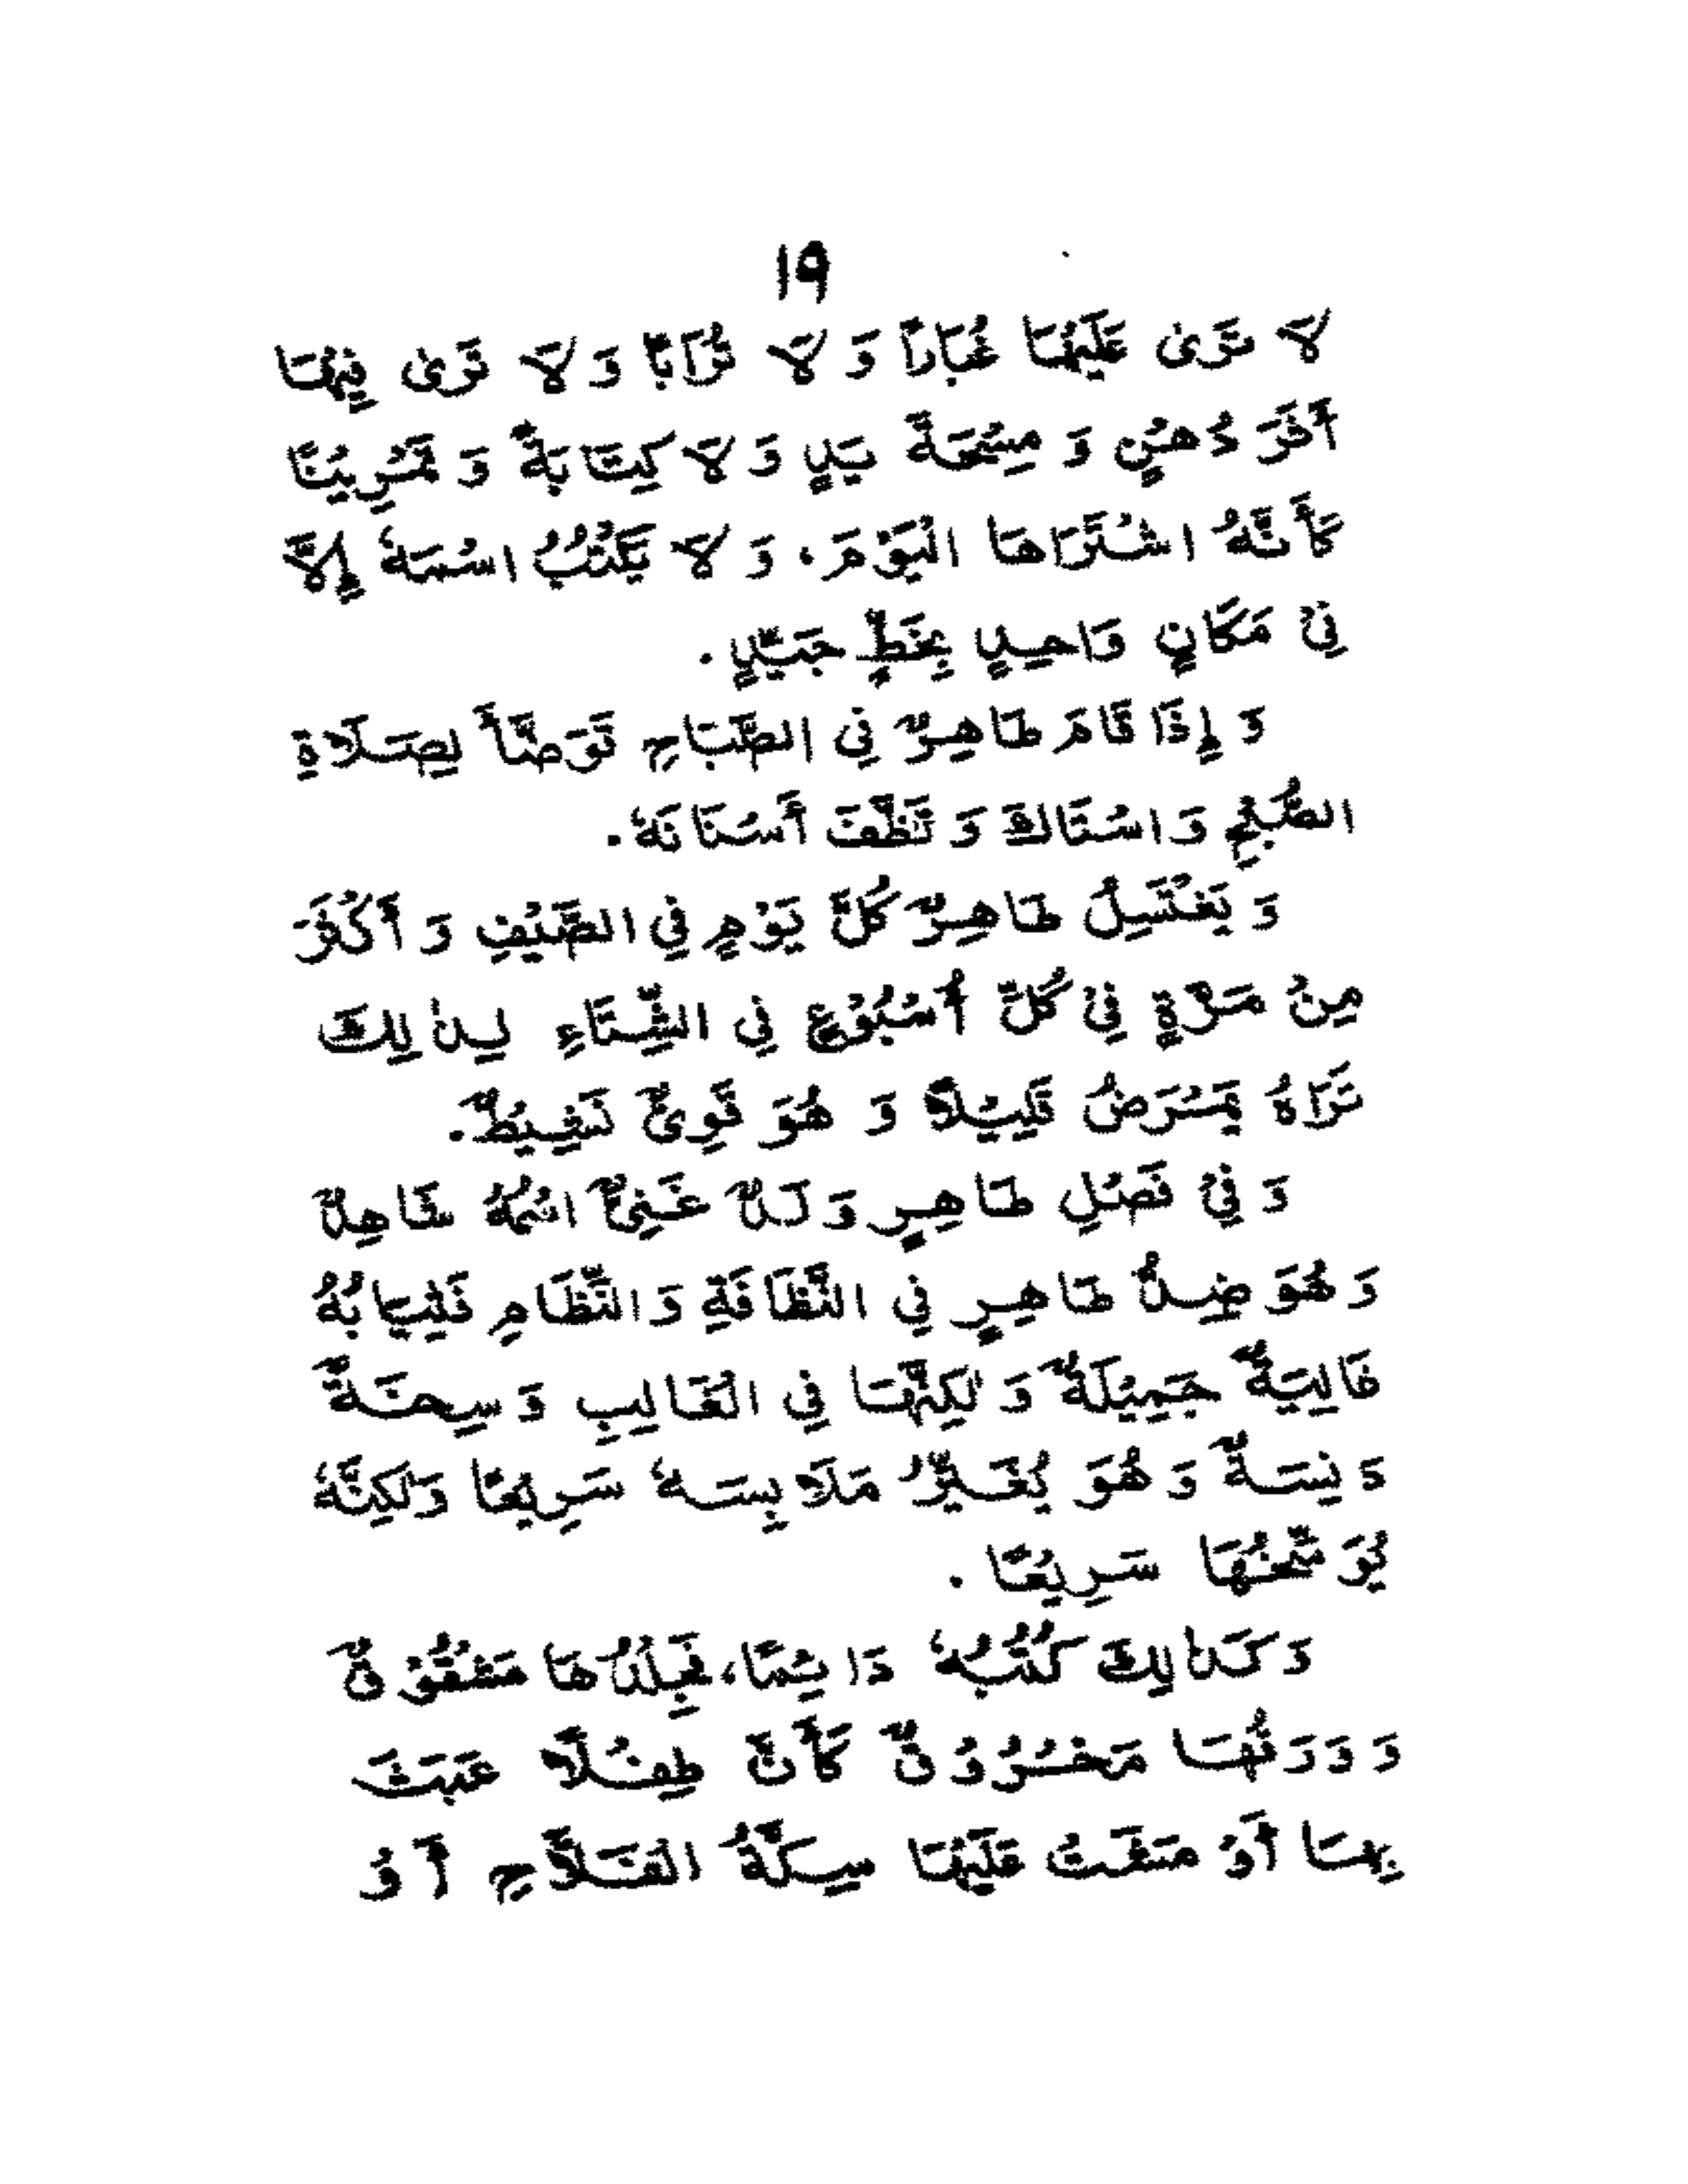 ١٩
لَا تَرَىٰ عَلَيْهَا غُبَاراً وَ لَا تُرَاباً وَ لَا تَرَىٰ فِيْهَا
أَثَرَ دُهْنٍ وَ مِسْحَةَ يَدٍ وَ لَا كِتَابَةً وَ تَمْرِيْنًا
كَأَنَّهُ اشْتَرَاهَا الْيَوْمَ، وَ لَا يَكْتُبُ اسْمَهُ إِلَّا
فِيْ مَكَانٍ وَاحِدٍ بِخَطٍّ جَيِّدٍ.
وَ إِذَا قَامَ طَاهِرٌ فِي الصَّبَاحِ تَوَضَّأَ لِصَلَاةِ
الصُّبْحِ وَ اسْتَاكَ وَ نَظَّفَ أَسْنَانَهُ.
وَ يَغْتَسِلُ طَاهِرٌ كُلَّ يَوْمٍ فِي الصَّيْفِ وَ أَكْثَرَ
مِنْ مَرَّةٍ فِيْ كُلِّ أُسْبُوْعٍ فِي الشِّتَاءِ لِذٰلِكَ
تَرَاهُ يَمْرَضُ قَلِيْلاً وَ هُوَ قَوِيٌّ نَشِيْطٌ.
وَ فِيْ فَصْلِ طَاهِرٍ وَلَدٌ غَنِيٌّ اسْمُهُ شَاهِدٌ
وَ هُوَ ضِدُّ طَاهِرٍ فِي النَّظَافَةِ وَ النِّظَامِ فَثِيَابُهُ
غَالِيَةٌ جَمِيْلَةٌ وَ لٰكِنَّهَا فِي الْغَالِبِ وَسِخَةٌ
دَنِسَةٌ وَ هُوَ يُغَيِّرُ مَلَابِسَهُ سَرِيْعًا وَلٰكِنَّهُ
يُوَسِّخُهَا سَرِيْعًا.
وَ كَذٰلِكَ كُتُبُهُ دَائِمًا، فَجِلْدُهَا مَشْقُوْقٌ
وَ وَرَقُهَا مَخْرُوْقٌ كَأَنَّ طِفْلاً عَبَثَ
بِهَا أَوْ مَرَّتْ عَلَيْهَا سِكَّةُ الْفَلَّاحِ أَوْ